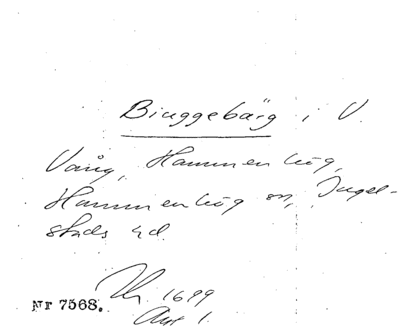 Biuggebärg i V.
Vång, Hammenhög,
Hammenhög sn, Ingel-
stads hd.
1699
Nr 7568.